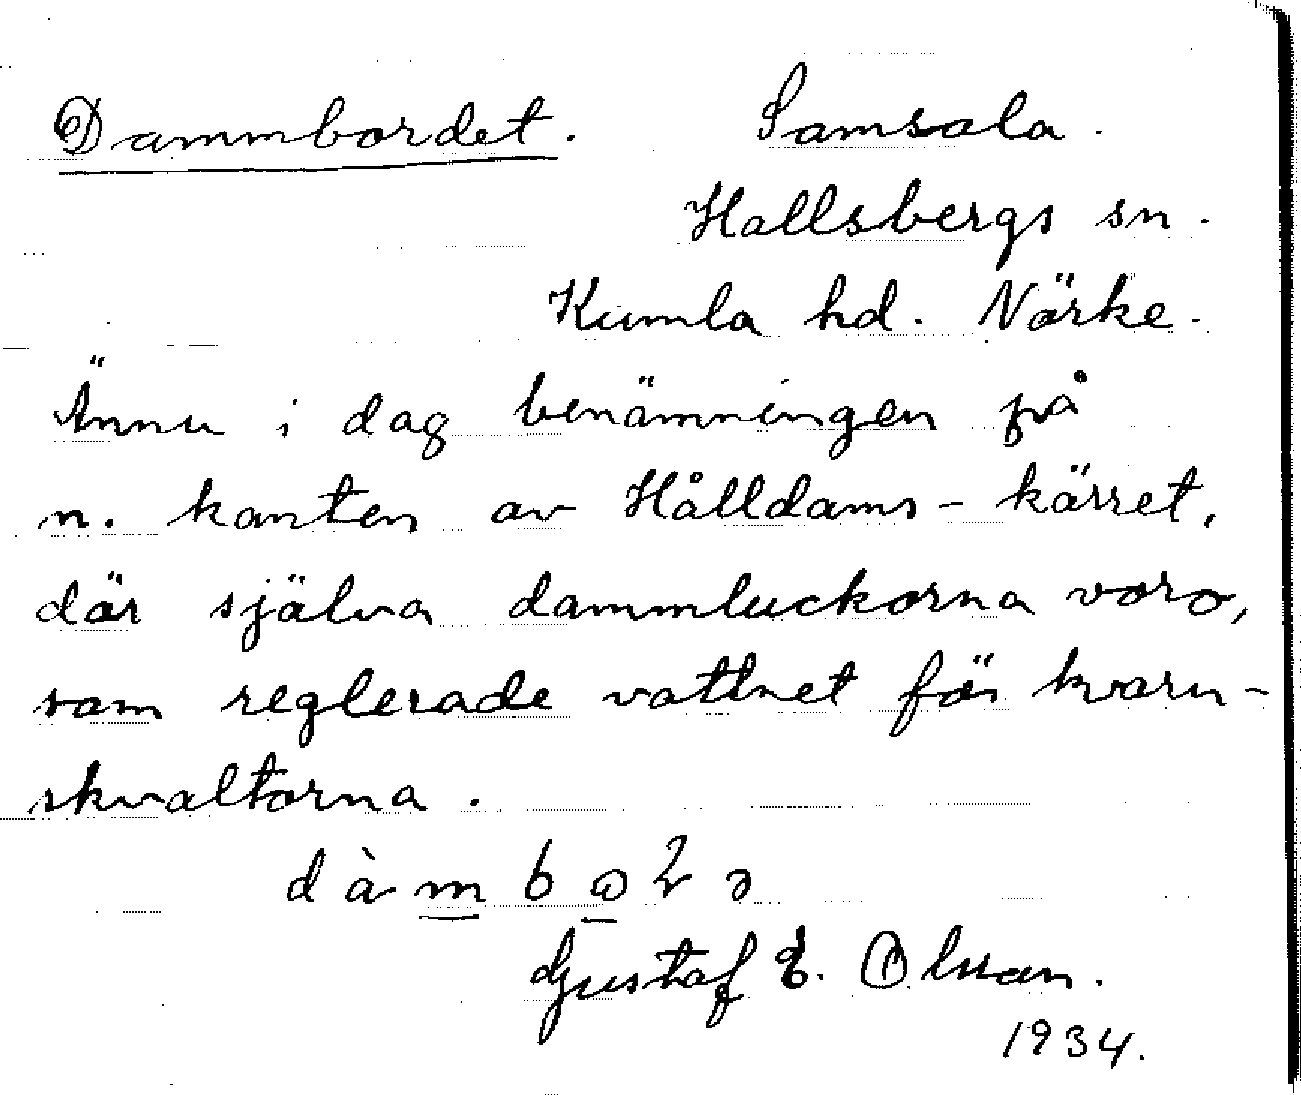 Dammbordet. Samsala.
Hallsbergs sn.
Kumla hd. Närke.
Ännu i dag benämningen på
n. kanten av Hålldams-kärret,
där själva dammluckorna voro,
som reglerade vattnet för kvarn-
skvaltorna.
Gustaf E. Olsson.
1934.